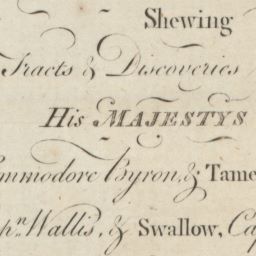 Shewing
Tracts & Discoveries
His MAJESTYS
ommodore Byron, & Tame
pn. Wallis, & Swallow, Cap